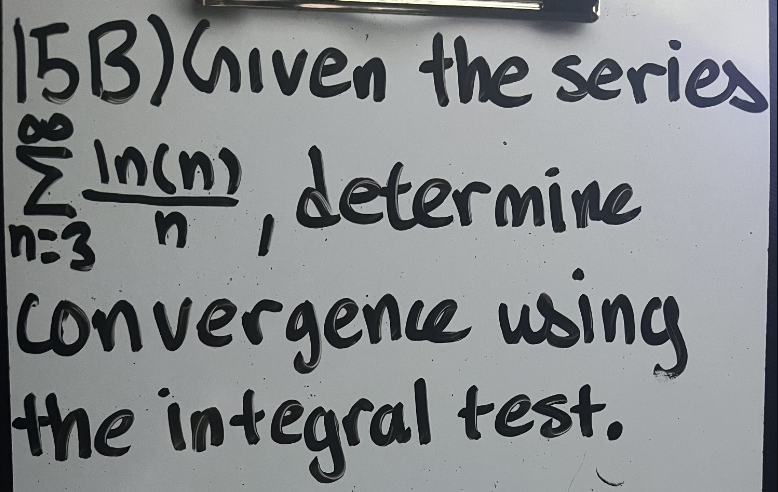 15B) Given the series
∞
∑ ln(n)/n , determine
n=3
convergence using
the integral test.